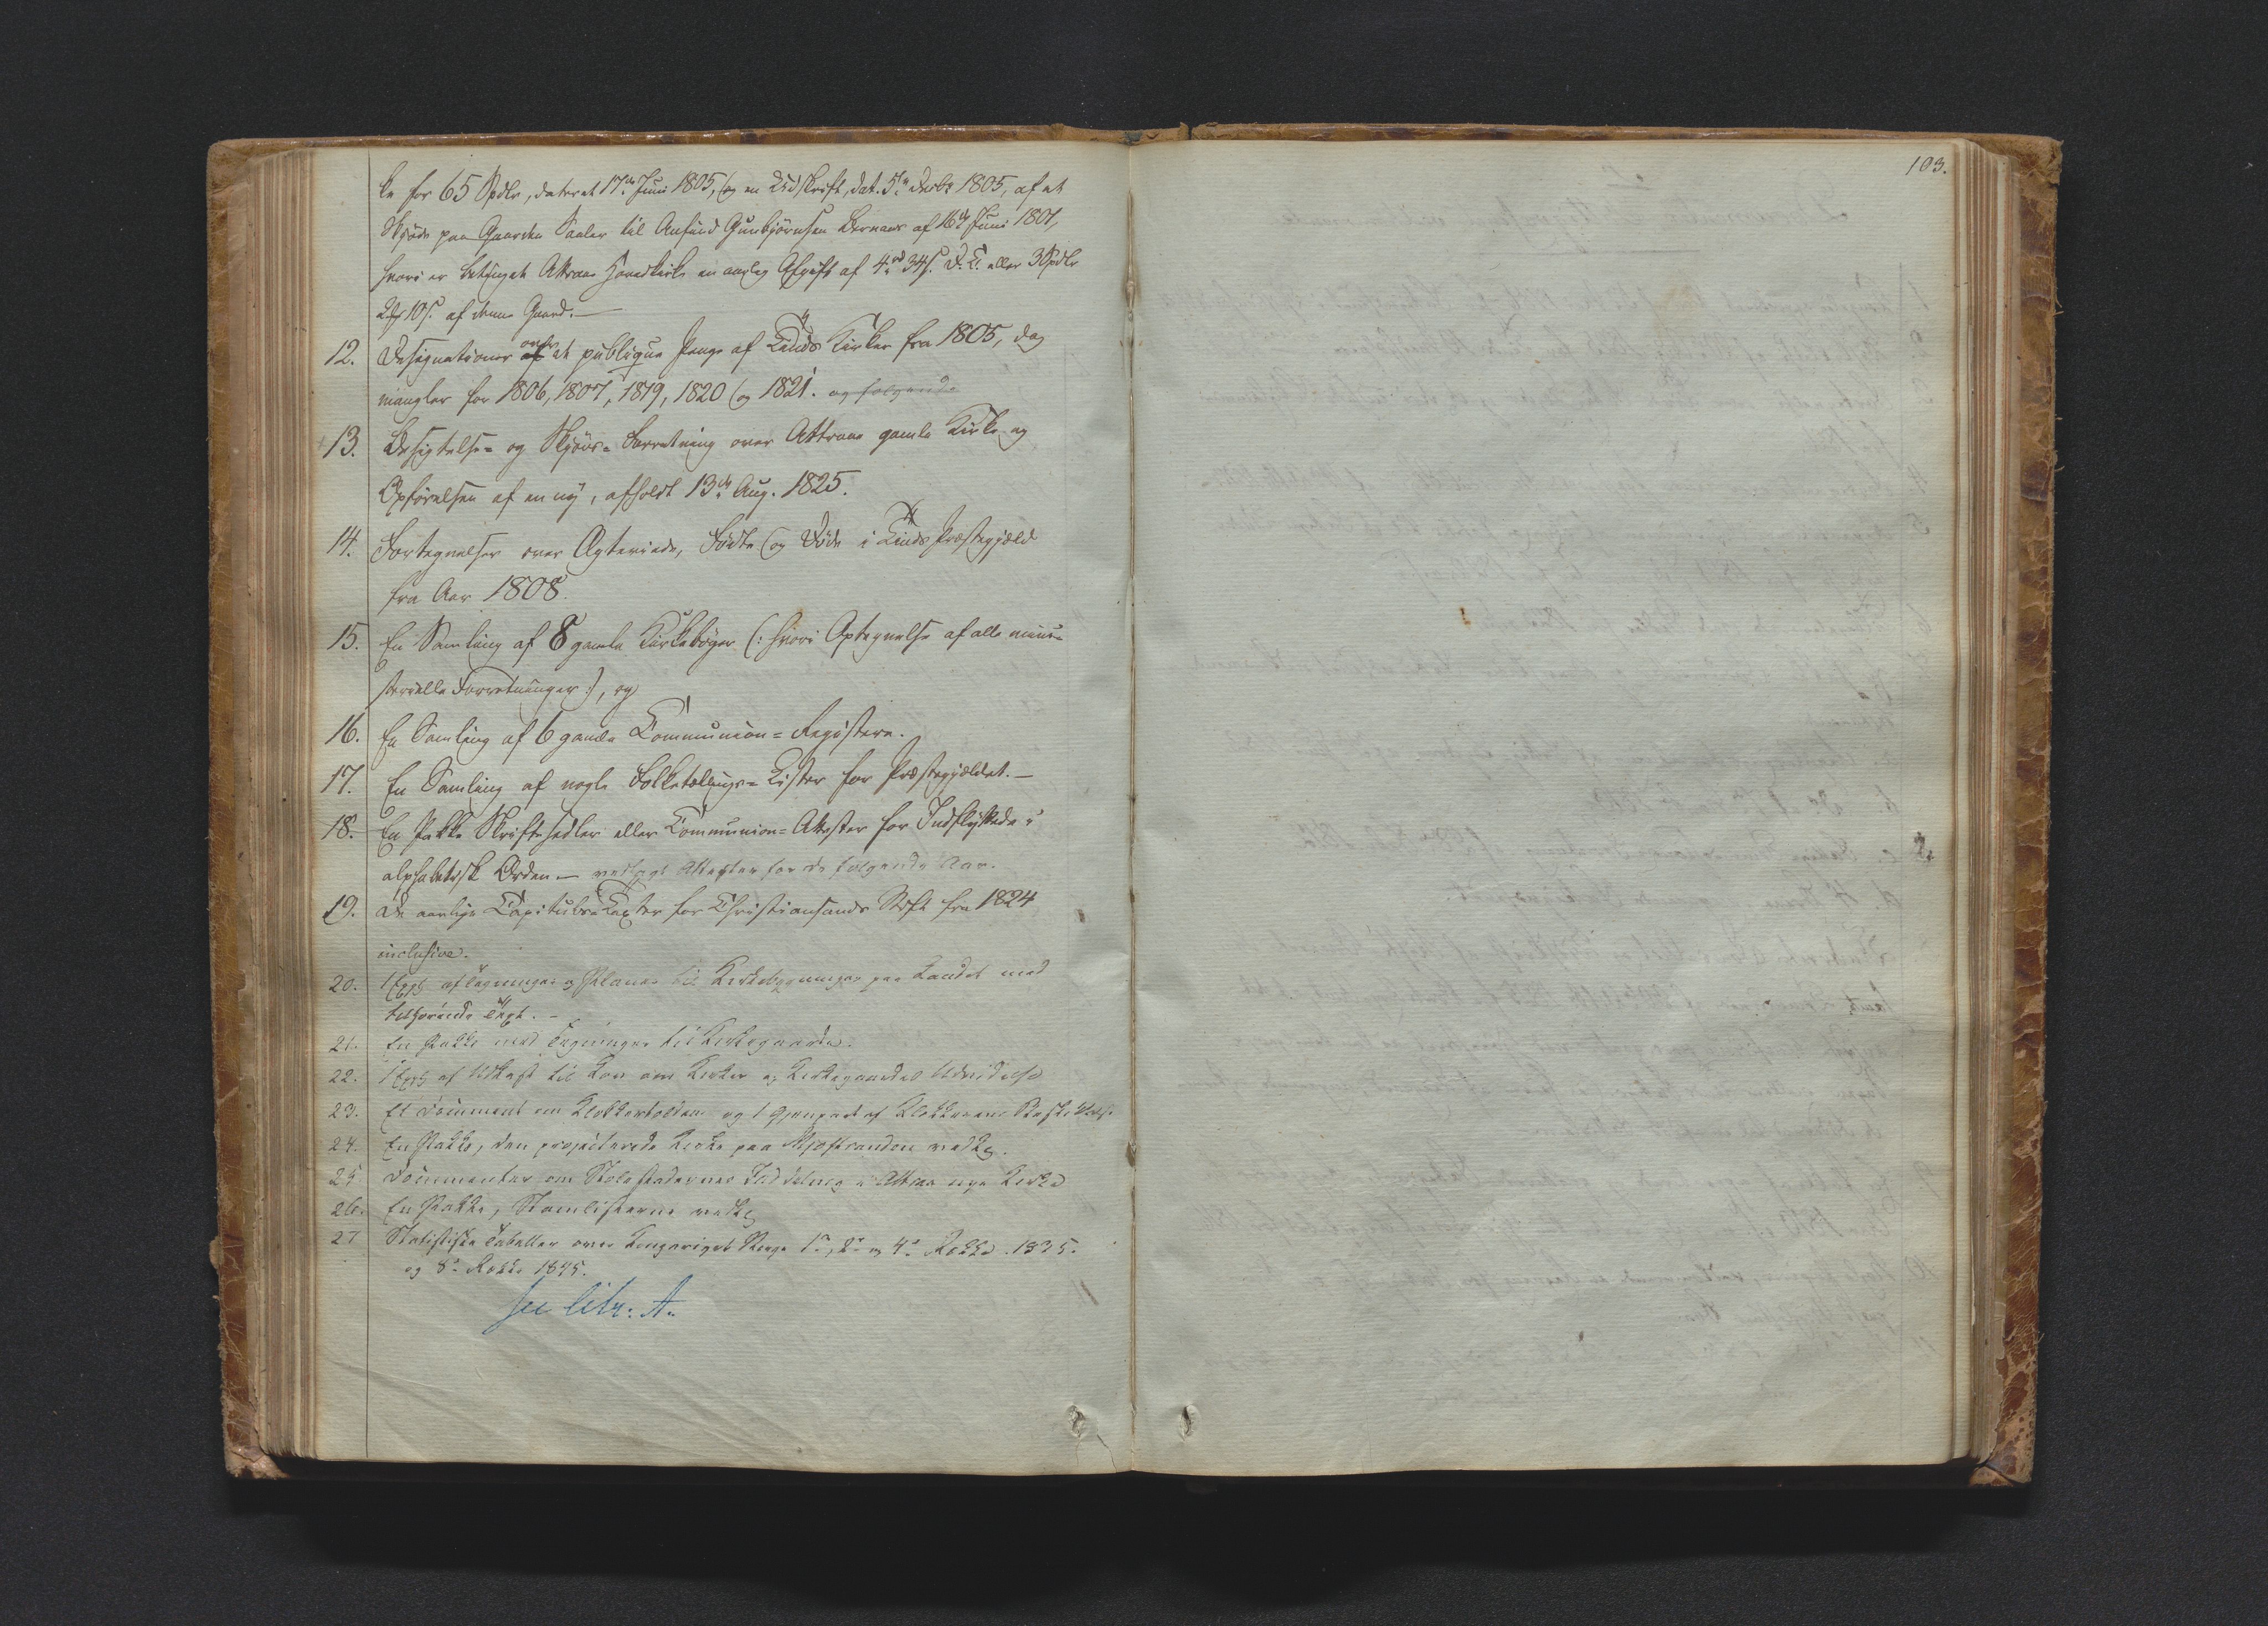 103.
ke for 65 Spdlr, dateret 17de Juni 1805, og en Udskrift, dat. 5te Decbr 1805, af et
Skjøde paa Gaarden Saaler til Anfind Gunbjørnsen af 16de Juni 1801,
hvori er betinget Attraae Hovedkirke en aarlig Afgift af 4rd 34s. D. C. eller 3 Spdlr
10s. af denne Gaard. —
12. Designationer over det publique Penge af Tinds Kirker fra 1805, dog
mangler for 1806, 1807, 1819, 1820 og 1821. og følgende
13. Besigtelse- og Skjøns-Forretning over Attraae gamle Kirke og
Opførelsen af en ny, afholdt 13de Aug. 1825.
14. Fortegnelser over Ægteviede, Fødte og Døde i Tinds Præstegjæld
fra Aar 1808.
15. En Samling af 8 gamle Kirkebøger (: hvori Optegnelse af alle mini-
sterielle Forretninger :), og
16. En Samling af 6 gamle Communion-Registere.
17. En Samling af nogle Folketællings-Lister for Præstegjældet. —
18. En Pakke Skriftesedler eller Communion-Attester for Indflyttede i
alphabetisk Orden — vedlagt Attester for de følgende Aar.
19. De aarlige Capitels-Taxter for Christiansands Stift fra 1824
inclusive.
20. 1 Expl af Tegninger og Planer til Kirkebygninger paa Landet med
tilhørende Text. —
21. En Pakke med Tegninger til Kirkegaarde.
22. 1 Expl af Udkast til Lov om Kirker og Kirkegaardes Udvidelse
23. Et Document om Klokkertolden og 1 Gjenpart af Klokkerens
24. En Pakke, den projecterede Kirke paa Mjøsstranden vedk.
25 Documenter om Stolestadernes Inddeling i Attraa nye Kirke
26. En Pakke, Skamlisterne vedk
27 Statistiske Tabeller over Kongeriget Norge 1ste, 2de og 4de Række. 1835.
og 8de Række 1845.
see litr: A.